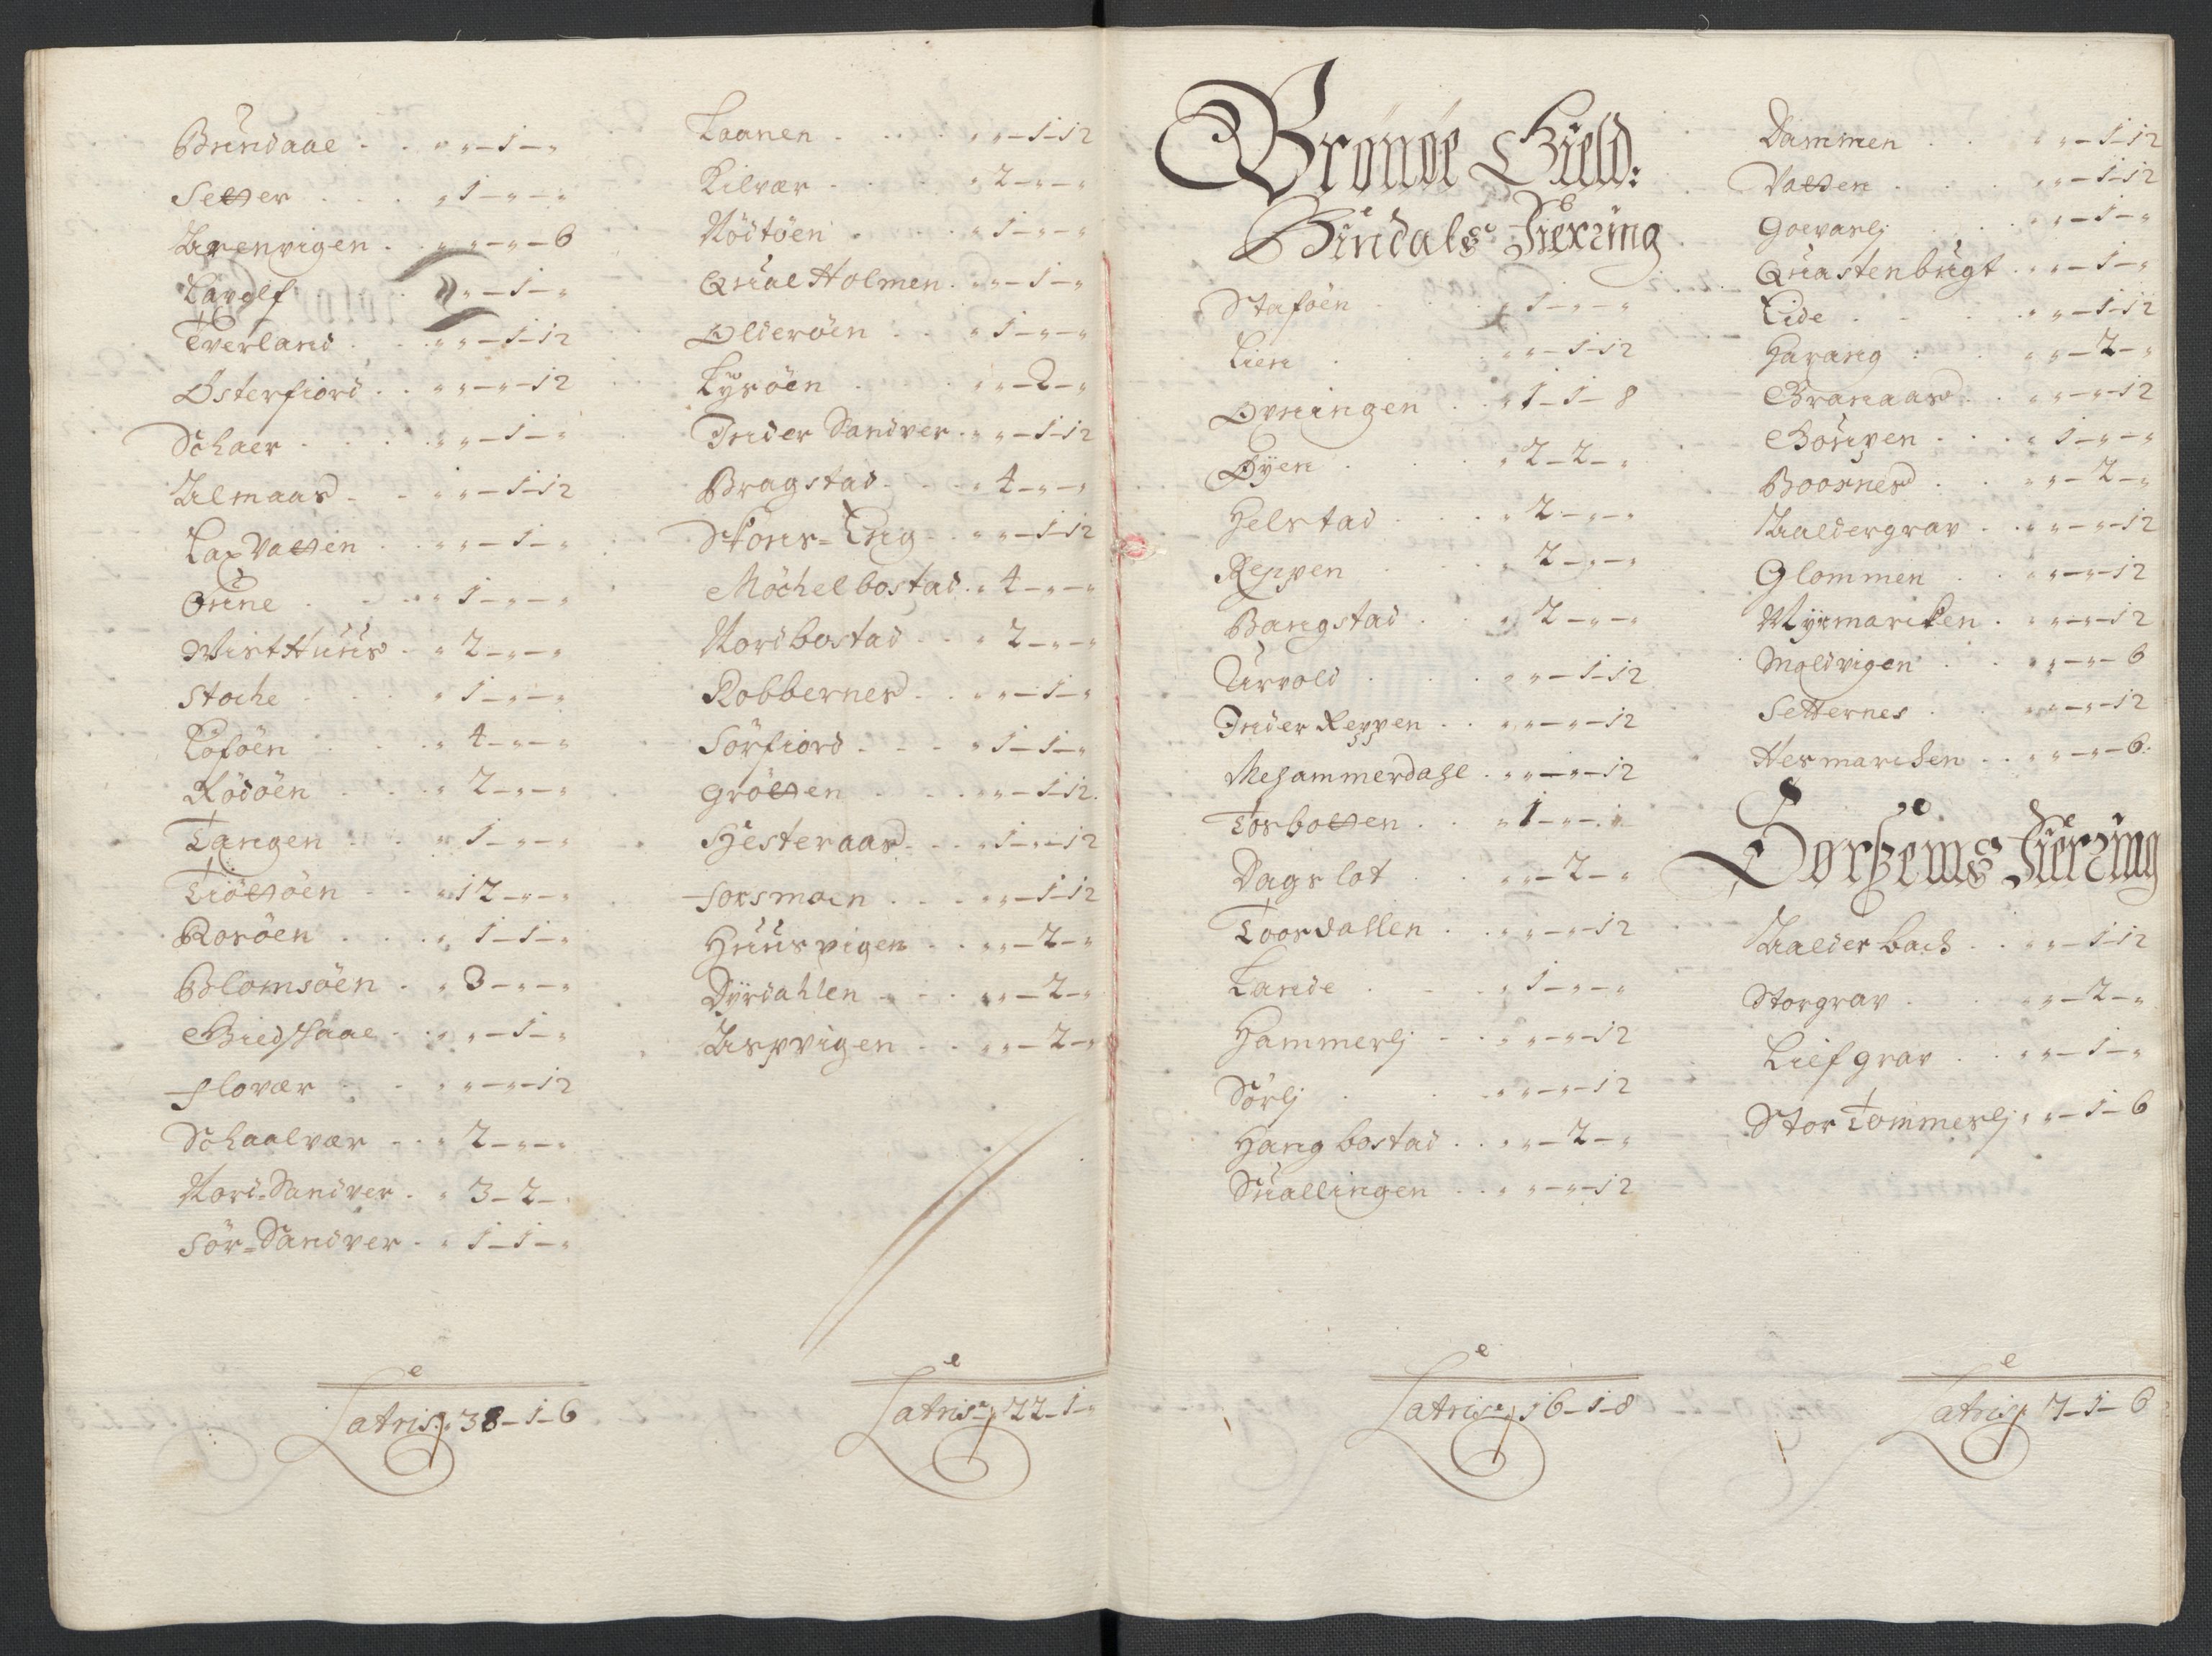 Brundaae . . „ „ – 1 – „
Setter . . . „ 1 – „ – „
Urenvigen . . „ „ – „ – 6
Lavolf „ „ – 1 – „
Tverland . . „ „ – 1 – 12
Østerfiord . . „ „ – „ – 12
Schaer . . . „ „ – 1 – „
Ulmaas . . „ „ – 1 – 12
Lax Vatten . . „ „ – 1 – „
Ønne . . . „ 1 – „ – „
VistHuus . „ 2 – „ – „
Stoche . . . „ 1 – „ – „
Loföen . . . „ 4 – „ – „
Rödöen . . „ 2 – „ – „
Tangen . . . „ 1 – „ – „
Tiöttöen . . „ 12 – „ – „
Rosöen . . . „ 1 – 1 – „
Blomsöen . „ 3 – „ – „
Giedschaae . „ „ – 1 – „
Flovær . . „ „ – „ – 12
Schaalvær . . „ 2 – „ – „
Nord-Sandver . „ 3 – 2 – „
Sör-Sandver . „ 1 – 1 – „
Latris. „ 38 – 1 – 6
Laanen . . . „ „ – 1 – 12
Kilvær . . . „ 2 – „ – „
Nödtöen . . . „ 1 – „ – „
Qual Holmen . „ „ – 1 – „
Olderöen . . „ 1 – „ – „
Lysöen . . . „ „ – 2 – „
Inder Sandver . „ „ – 1 – 12
Bragstad . . . „ 4 – „ – „
Stors-Eng . . „ „ – 1 – 12
Möchelbostad . „ 4 – „ – „
Nordbostad . . „ 2 – „ – „
Robbernes . . „ „ – 1 – „
Sörfiord . . . „ 1 – 1 – „
Grötten . . . „ „ – 1 – 12
Hesteraas . . „ 1 – „ – 12
Forsmoen . . . „ „ – 1 – 12
Huusvigen . . „ „ – 2 – „
Dyrdahlen . . . „ „ – 2 – „
Uspvigen . . „ „ – 2 – „
Latris „ 22 – 1 – „
Brönöe Gield:
Bindals Fierzing
Staföen . . . „ 1 – „ – „
Lien . . . „ „ – 1 – 12
Ovningen . . „ 1 – 1 – 8
Øyen . . . „ 2 – 2 – „
Helstad . . . „ 2 – „ – „
Reppen . . . „ 2 – „ – „
Bangstad . . „ 2 – „ – „
Urvold . . . „ „ – 1 – 12
Inder Reppen . . „ „ – „ – 12
Mehammerdahl . „ „ – „ – 12
Torbotten . . „ 1 – „ – „
Dagslot . . . „ „ – 2 – „
Toordallen . . „ „ – „ – 12
Lande . . . „ 1 – „ – „
Hammerlj . . „ „ – „ – 12
Sörlj . . . „ „ – „ – 12
Hangbostad . . „ „ – 2 – „
Suallingen . . „ „ – „ – 12
Latris „ 16 – 1 – 8
Dammen . . „ „ – 1 – 12
Vatten . . . „ „ – 1 – 12
Goevarlj . . „ „ – 1 – „
Quastenbugt . „ „ – 1 – „
Eide . . . „ „ – 1 – 12
Harang . . „ „ – 2 – „
Granaas . . „ „ – „ – 12
Gaupen . . . „ 1 – „ – „
Boornes . . „ „ – 2 – „
Kaldergrav . . „ „ – „ – 12
Glommen . . „ „ – „ – 12
Myrmarcken . „ „ – „ – 12
Moldvigen . . „ „ – „ – 6
Setternes . . „ „ – „ – 12
Hesmarchen . . „ „ – „ – 6:
Sorhems Fierzing
Kalderbach . . „ „ – 1 – 12
Storgrav . . „ „ – 2 – „
Liefgrav . . „ „ – 1 – „
Stor Tommerlj „ „ – 1 – 6
Latris „ 7 – 1 – 6